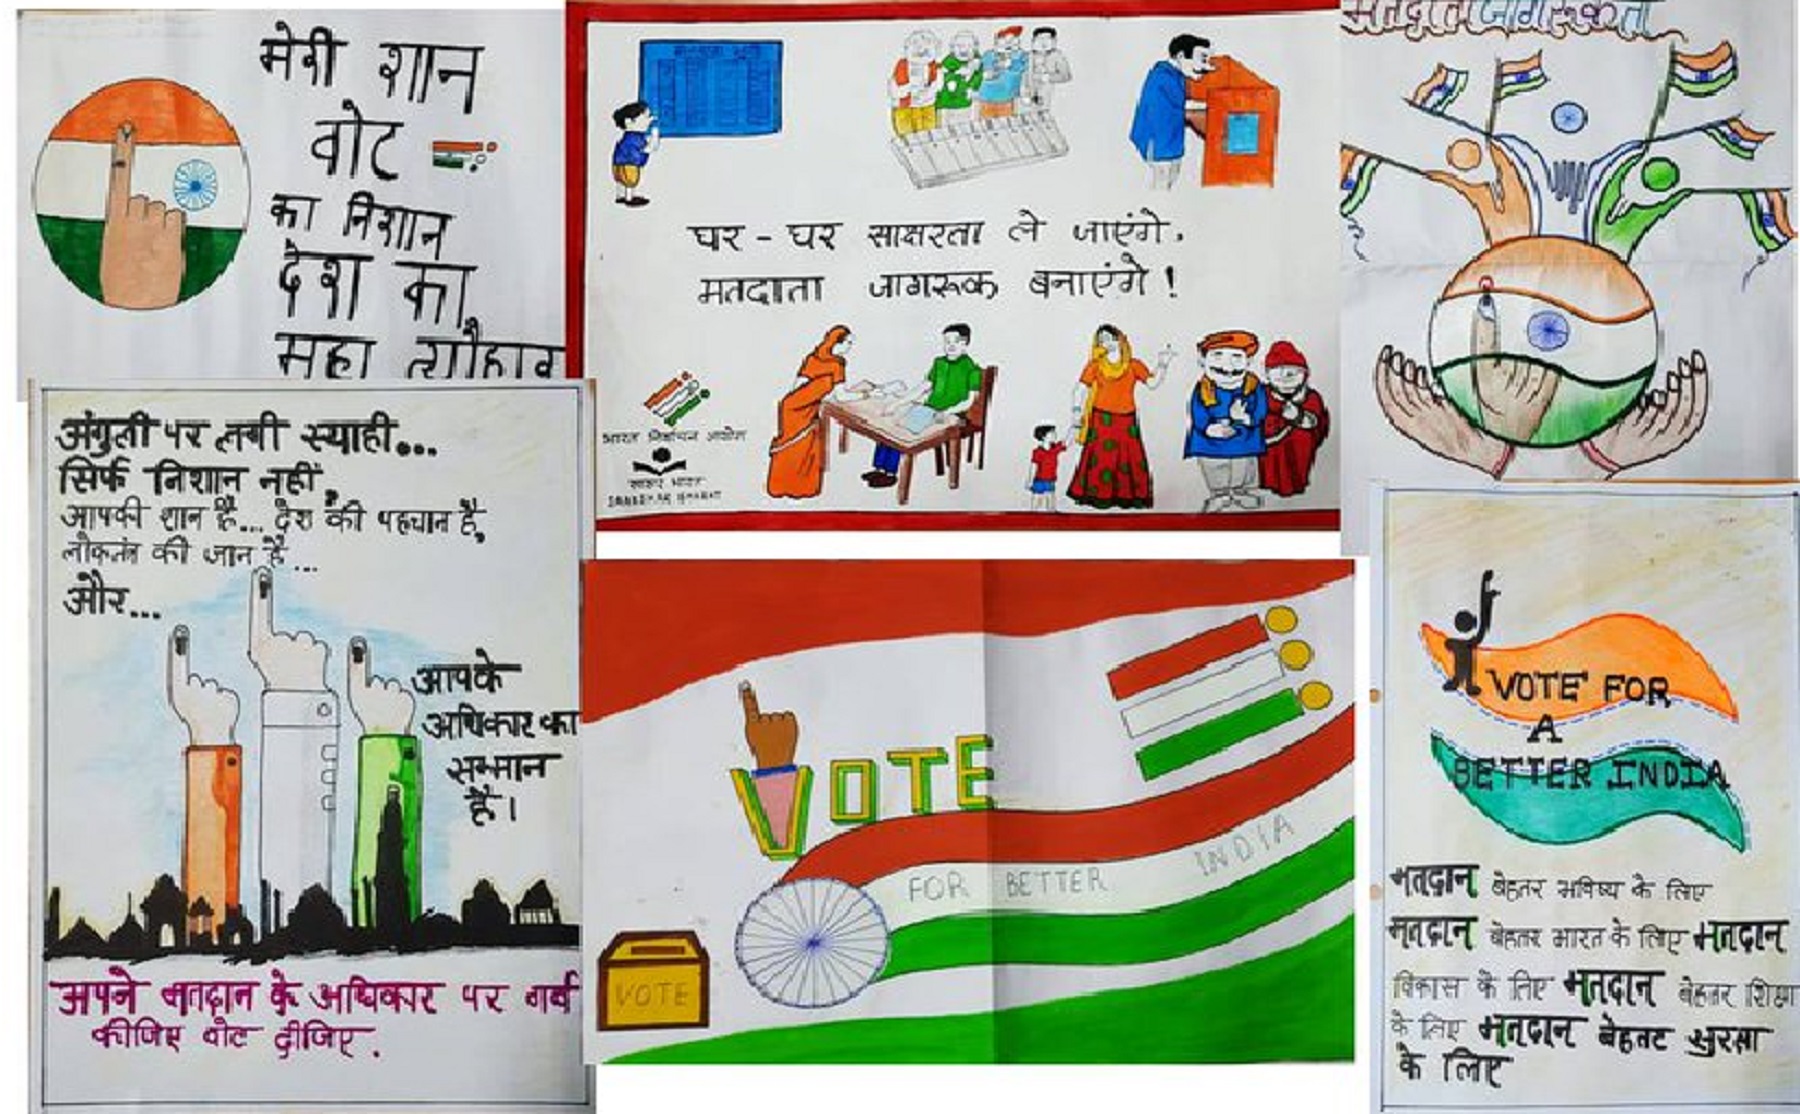 मेरी शान
वोट
का निशान
देश का
महा त्यौहार
घर - घर साक्षरता ले जाएंगे.
मतदाता जागरूक बनाएंगे !
भारत निर्वाचन आयोग
साक्षर भारत
मतदान जागरूकता
अंगुली पर लगी स्याही...
सिर्फ निशान नहीं,
आपकी शान है... देश की पहचान है,
लोकतंत्र की जान है...
और...
आपके
अधिकार का
सम्मान
है।
अपने मतदान के अधिकार पर गर्व
कीजिए वोट दीजिए.
VOTE
FOR BETTER INDIA
VOTE
VOTE FOR
A
BETTER INDIA
मतदान बेहतर भविष्य के लिए
मतदान बेहतर भारत के लिए मतदान
विकास के लिए मतदान बेहतर शिक्षा
के लिए मतदान बेहतर सुरक्षा
के लिए